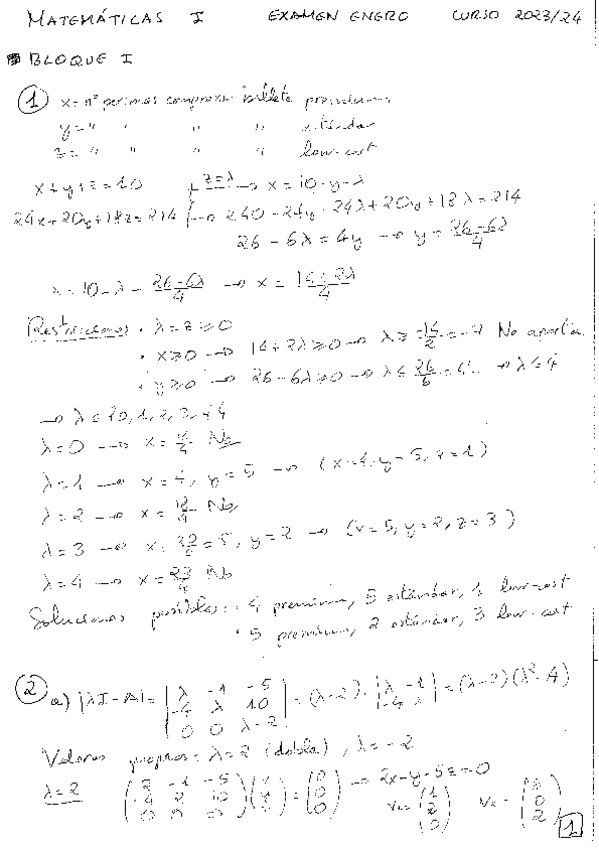 MATEMÁTICAS I EXAMEN ENERO CURSO 2023/24
BLOQUE I
① x = nº personas compraron billete premium
y = " " " " estándar
z = " " " " low-cost
x+y+z=10 z=λ → x=10-y-λ
24x+20y+18z=214 → 240-24y-24λ+20y+18λ=214
26-6λ=4y → y=26-6λ/4
x=10-λ-26-6λ/4 → x=14+2λ/4
Restricciones • λ=z≥0
• x≥0 → 14+2λ≥0 → λ≥-14/2=-7 No aporta
• y≥0 → 26-6λ≥0 → λ≤26/6=4... → λ≤4
→ λ={0,1,2,3,4}
λ=0 → x=14/4 No
λ=1 → x=4, y=5 → (x=4, y=5, z=1)
λ=2 → x=18/4 No
λ=3 → x=20/4=5, y=2 → (x=5, y=2, z=3)
λ=4 → x=22/4 No
Soluciones posibles: • 4 premium, 5 estándar, 1 low-cost
• 5 premium, 2 estándar, 3 low-cost
② a) |λI-A|= |λ -1 -5; -4 λ 10; 0 0 λ-2| =(λ-2)·|λ -1; -4 λ|=(λ-2)(λ²-4)
Valores propios: λ=2 (doble), λ=-2
λ=2 (2 -1 -5; -4 2 10; 0 0 0)(x; y; z)=(0; 0; 0) → 2x-y-5z=0
(1; 2; 0)
1